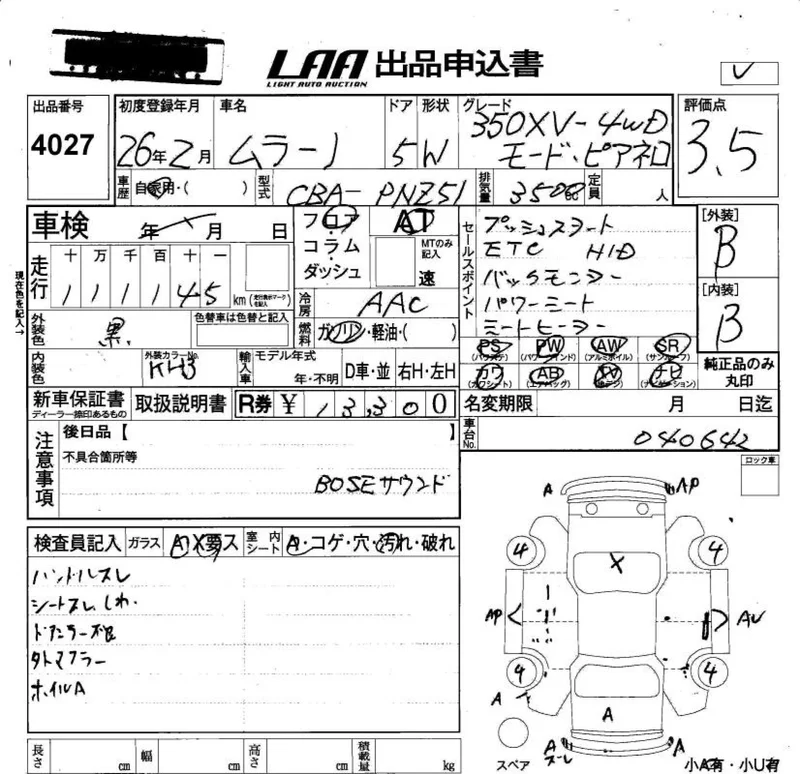 LAA 出品申込書
LIGHT AUTO AUCTION
出品番号
4027
初度登録年月
26年2月
車名
ムラーノ
ドア
5
形状
W
グレード
350XV-4WD
モード・ビアネロ
評価点
3.5
車歴
自家用・( )
型式
CBA-PNZ51
排気量
3500cc
定員
人
車検
年 月 日
フロア
コラム・
ダッシュ
AT
MTのみ記入
速
セールスポイント
プッシュスタート
ETC HID
バックモニター
パワーシート
シートヒーター
[外装]
B
[内装]
B
現在色を記入→
走行
十 万 千 百 十 一
111145
km
(走行表示マークを記入)
冷房
AAC
燃料
ガソリン・軽油・( )
外装色
黒
色替車は色替と記入
PS PW AW SR
(パワステ) (パワーウインド) (アルミホイル) (サンルーフ)
カワ AB TV ナビ
(カワシート) (エアバッグ) (ナビゲーション)
純正品のみ
丸印
内装色
外装カラーNo.
KH3
輸入車
モデル年式
年・不明
D車・並
右H・左H
新車保証書
ディーラー捺印あるもの
取扱説明書
R券
¥ 13,300
名変期限 月 日迄
車台No.
040642
注意事項
後日品【 】
不具合箇所等
BOSEサウンド
ロック車
検査員記入
ガラス
A X要ス
室内シート
A・コゲ・穴・汚れ・破れ
ハンドルスレ
シートスレ、しわ.
ホイルA
A AP
4 4
X
AP AU
4 4
A
A
A A
スレ
スペア
小A有・小U有
長さ cm
幅 cm
高さ cm
積載量 kg